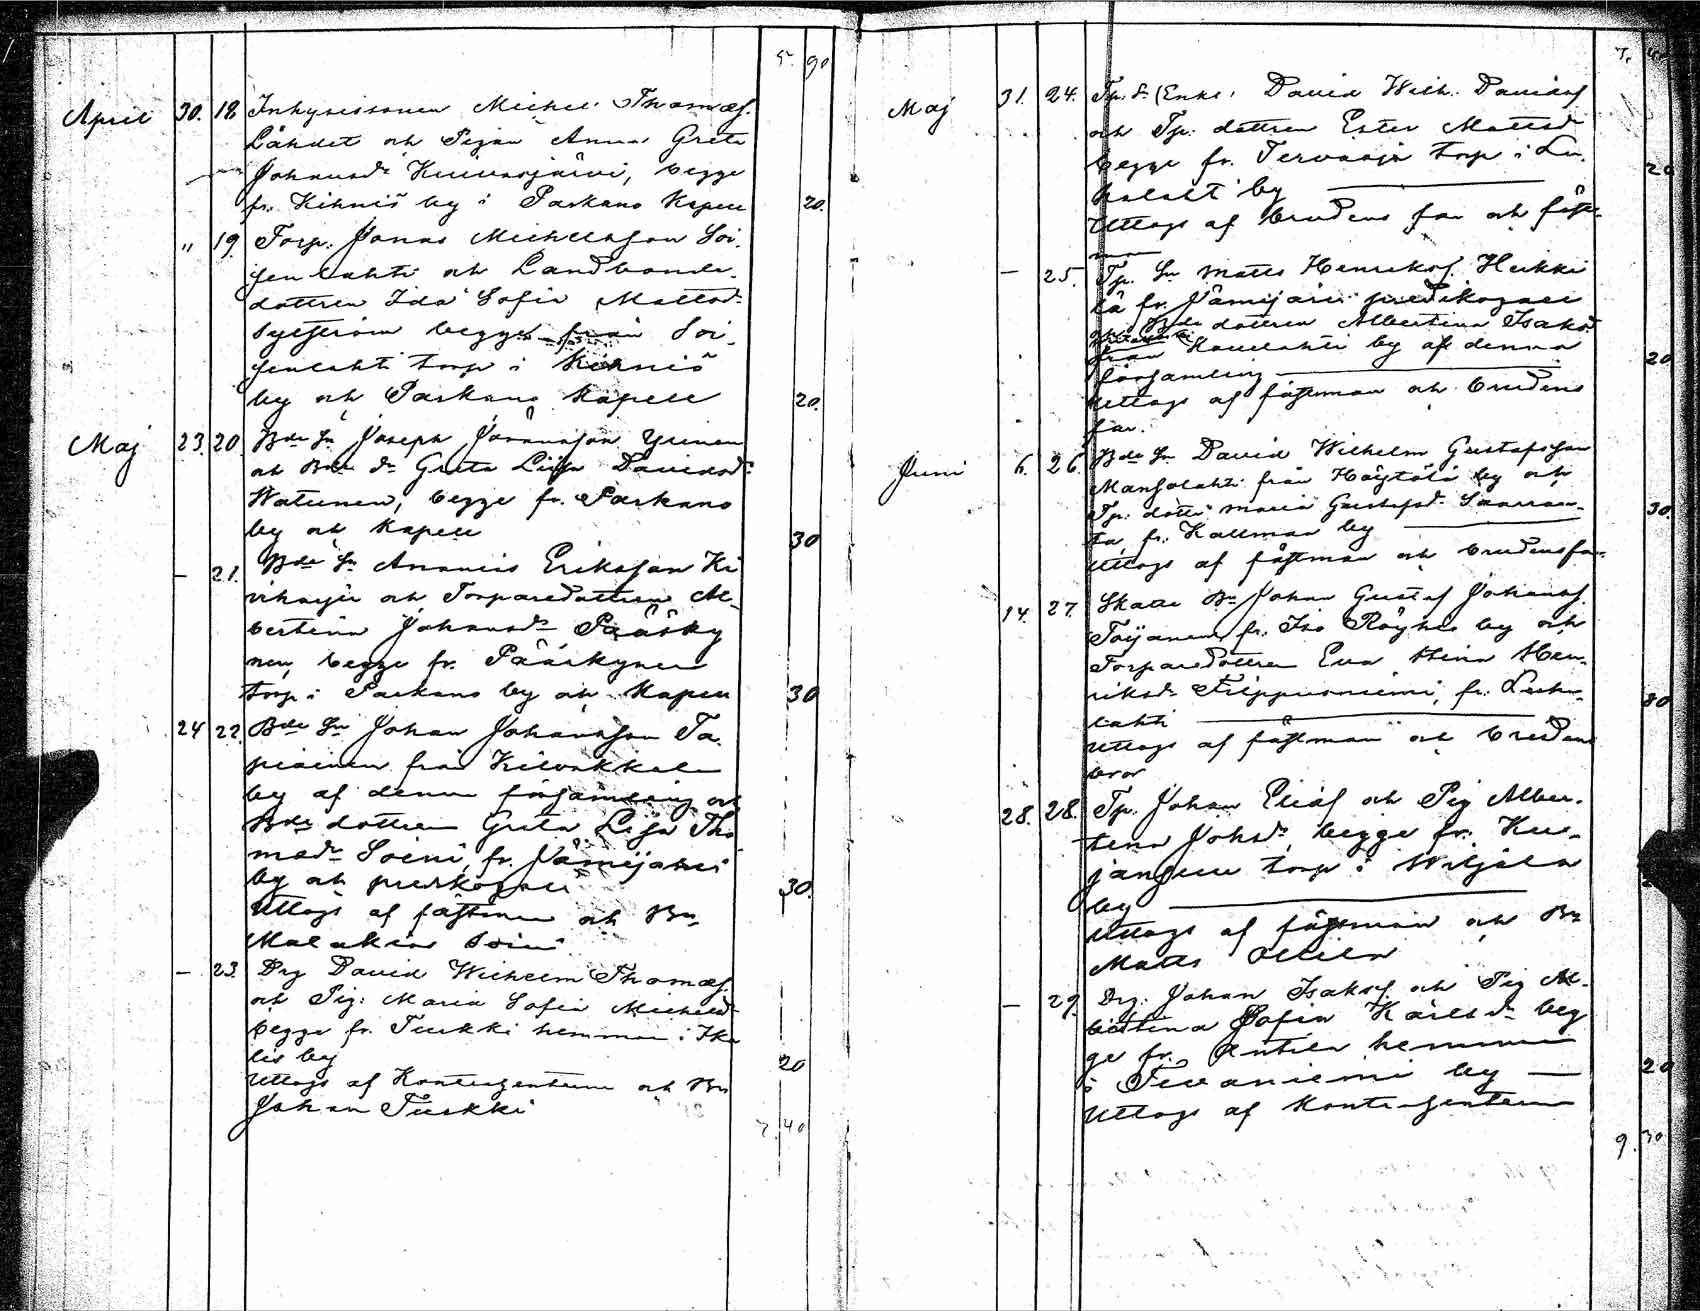 5 90
April 30. 18 Inhysessonen Michel Thomæs.
Lähdet och Pigan Anna Greta
Johansdr Kuivasjärvi, begge
fr. Kihniö by i Parkano Kapell 20.
" 19 Torp. Jonas Michelsson Soi-
senlahti och Landbonde-
dottren Ida Sofia Mattsdr
begge från Soi-
senlahti torp i Kihniö
by och Parkano Kapell 20.
Maj 23. 20. Bde Sn Joseph Johansson Yrinen
och Bde dr Greta Liisa Davidsdr
Watunen, begge fr. Parkano
by och Kapell 30
— 21. Bde Sn Ananias Eriksson Ki
viharju och Torparedottren Al-
bertina Johansdr Pääsky
nen, begge fr. Pääskynen
torp i Parkano by och Kapell 30
24 22. Bde Sn Johan Johansson Ta
piainen från Kilvakkala
by af denna församling och
Bde dottren Greta Lisa Tho
masdr Soini, fr. Jämijärvi
by och predikogäll 30.
Uttogs af fästman och Bn
Malakias Soini
— 23. Drg David Wilhelm Thomæs.
och Pig: Maria Sofia Michelsd
begge fr. Turkki hemman i Ika
lis by 20
Uttogs af Kontrahenterne och Bn
Johan Turkki
7. 40
7. 40
Maj 31. 24. Tp. Sn (Enkl. David Wilh. Davidsf
och Tp: dottren Ester Mattsd
begge fr. Tervaoja torp i Lu-
halahti by 20
Uttogs af brudens far och fäst-
man
— 25. Tp. Sn Matts Henriksf. Heikki
lä fr. Jämijärvi predikogäll
och Bde dottren Albertina Isaksd
från Kovelahti by af denna
församling 20
Uttogs af fästman och brudens
far.
Juni 6. 26. Bde Sn David Wilhelm Gustafsson
Mansolahti från Höytölä by och
Tp. dottr Maria Gustafsd. Saarran-
ta fr. Kallmaa by 30.
Uttogs af fästman och brudens far
14. 27. Skatte Bn Johan Gustaf Johansf.
Toijanen fr. Iso Röyhiö by och
Torparedottren Eva Stina Hen-
riksdr Filppusniemi, fr. Luha-
lahti 80
Uttogs af fästman och brudens
bror
28. 28. Tp. Johan Eliæs och Pig Alber-
tina Johsdr, begge fr. Kur-
jangen torp i Wiljala
by
Uttogs af fästman och Bn
Matts Ollila
— 29. Drg. Johan Isaksf och Pig Al-
bertina Sofia Karlsdr beg
ge fr. Antila hemman
i Tevaniemi by — 20
Uttogs af Kontrahenterne
9. 30